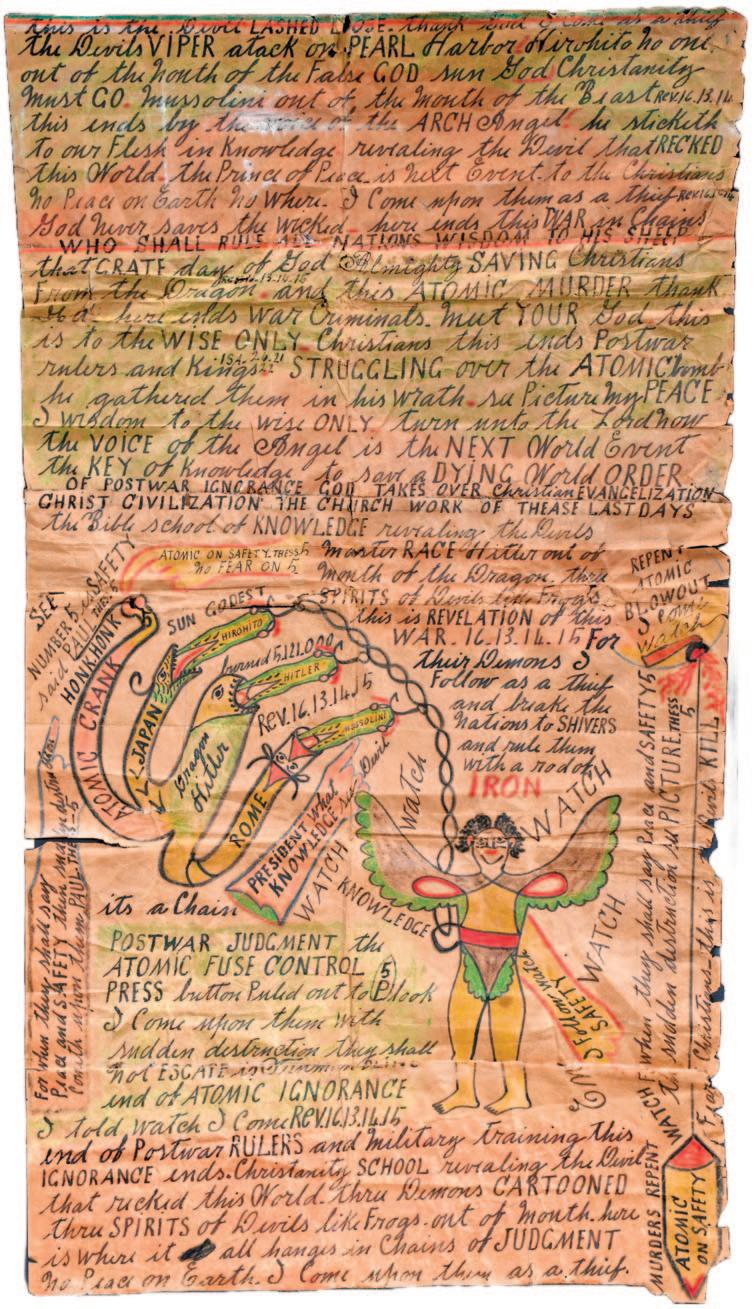 this is the Devil LASHED LOOSE. thank God I Come as a thief
the Devils VIPER atack on PEARL Harbor Hirohito No one
out of the Mouth of the False GOD sun God Christanity
Must GO. Mussolini out of, the Mouth of the Beast REV.16.13.14.
this ends by the voice of the ARCH Angel he sticketh
to our Flesh in Knowledge revealing the Devil that RECKED
this World the Prince of Peace is Next Event to the Christians
No Peace on Earth No Where. I Come upon them as a thief
God Never saves the wicked here ends this WAR in Chains
WHO SHALL RULE ALL NATIONS WISDOM TO HIS SHEEP
that GRATE day of God Almighty SAVING Christians
From the Dragon and this ATOMIC MURDER thank
here ends War Criminals. Meet YOUR God this
is to the WISE ONLY Christians this ends Postwar
rulers and Kings STRUGGLING over the ATOMIC bomb
he gathered them in his wrath. se Picture My PEACE
I wisdom to the wise ONLY turn unto the Lord Now
the VOICE of the Angel is the NEXT World Event
the KEY of Knowledge to save a DYING World ORDER
OF POSTWAR IGNORANCE GOD TAKES OVER Christian EVANGELIZATION
CHRIST CIVILIZATION THE CHURCH WORK OF THEASE LAST DAYS
the Bible school of KNOWLEDGE revealing the Devils
Master RACE Hitler out of
Mouth of the Dragon. three
SPIRITS of Devils like Frogs
this is REVELATION of this
WAR. 16.13.14.15 For
their Demons I
Follow as a thief
and breake the
Nations to SHIVERS
and rule them
with a rod of
IRON
ATOMIC ON SAFETY. THESS 5
NO FEAR ON 5
REPENT
ATOMIC
BLOWOUT
I come
Watch
SEE
NUMBER 5 SAFETY
said PAUL THES. 5
HONK HONK
ATOMIC CRANK
SUN GODEST
HIROHITO
JAPAN
horned 5,121,000
HITLER
Dragon
Hitler
Rev. 16.13.14.15
MUSSOLINI
ROME
PRESIDENT what
KNOWLEDGE
Devil
watch
WATCH
WATCH
KNOWLEDGE
WATCH
I Follow watch
SAFETY
its a Chain
POSTWAR JUDGMENT the
ATOMIC FUSE CONTROL 5
PRESS button Puled out to P look
I Come upon them with
sudden destruction they shall
Not ESCATE
end of ATOMIC IGNORANCE
I told watch I Come REV.16.13.14.15
end of Postwar RULERS and Military training this
IGNORANCE ends. Christanity SCHOOL revealing the Devil
that recked this World. three Demons CARTOONED
three SPIRITS of Devils like Frogs. out of Mouth. here
is where it all hanges in Chains of JUDGMENT
No Peace on Earth. I Come upon them as a thief.
For when they shall say
Peace and SAFETY then
Cometh upon them PAUL THES-5
WATCH
For when they shall say Peace and SAFETY 5
sudden destruction se PICTURE. THESS 5
Christians this is
KILL
MURDERS REPENT
ATOMIC
ON SAFETY